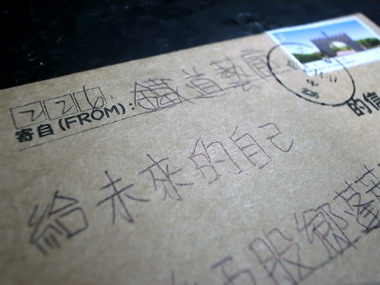 226
寄自(FROM): 鐵道藝廊 的信
給未來的自己
五股鄉蓬